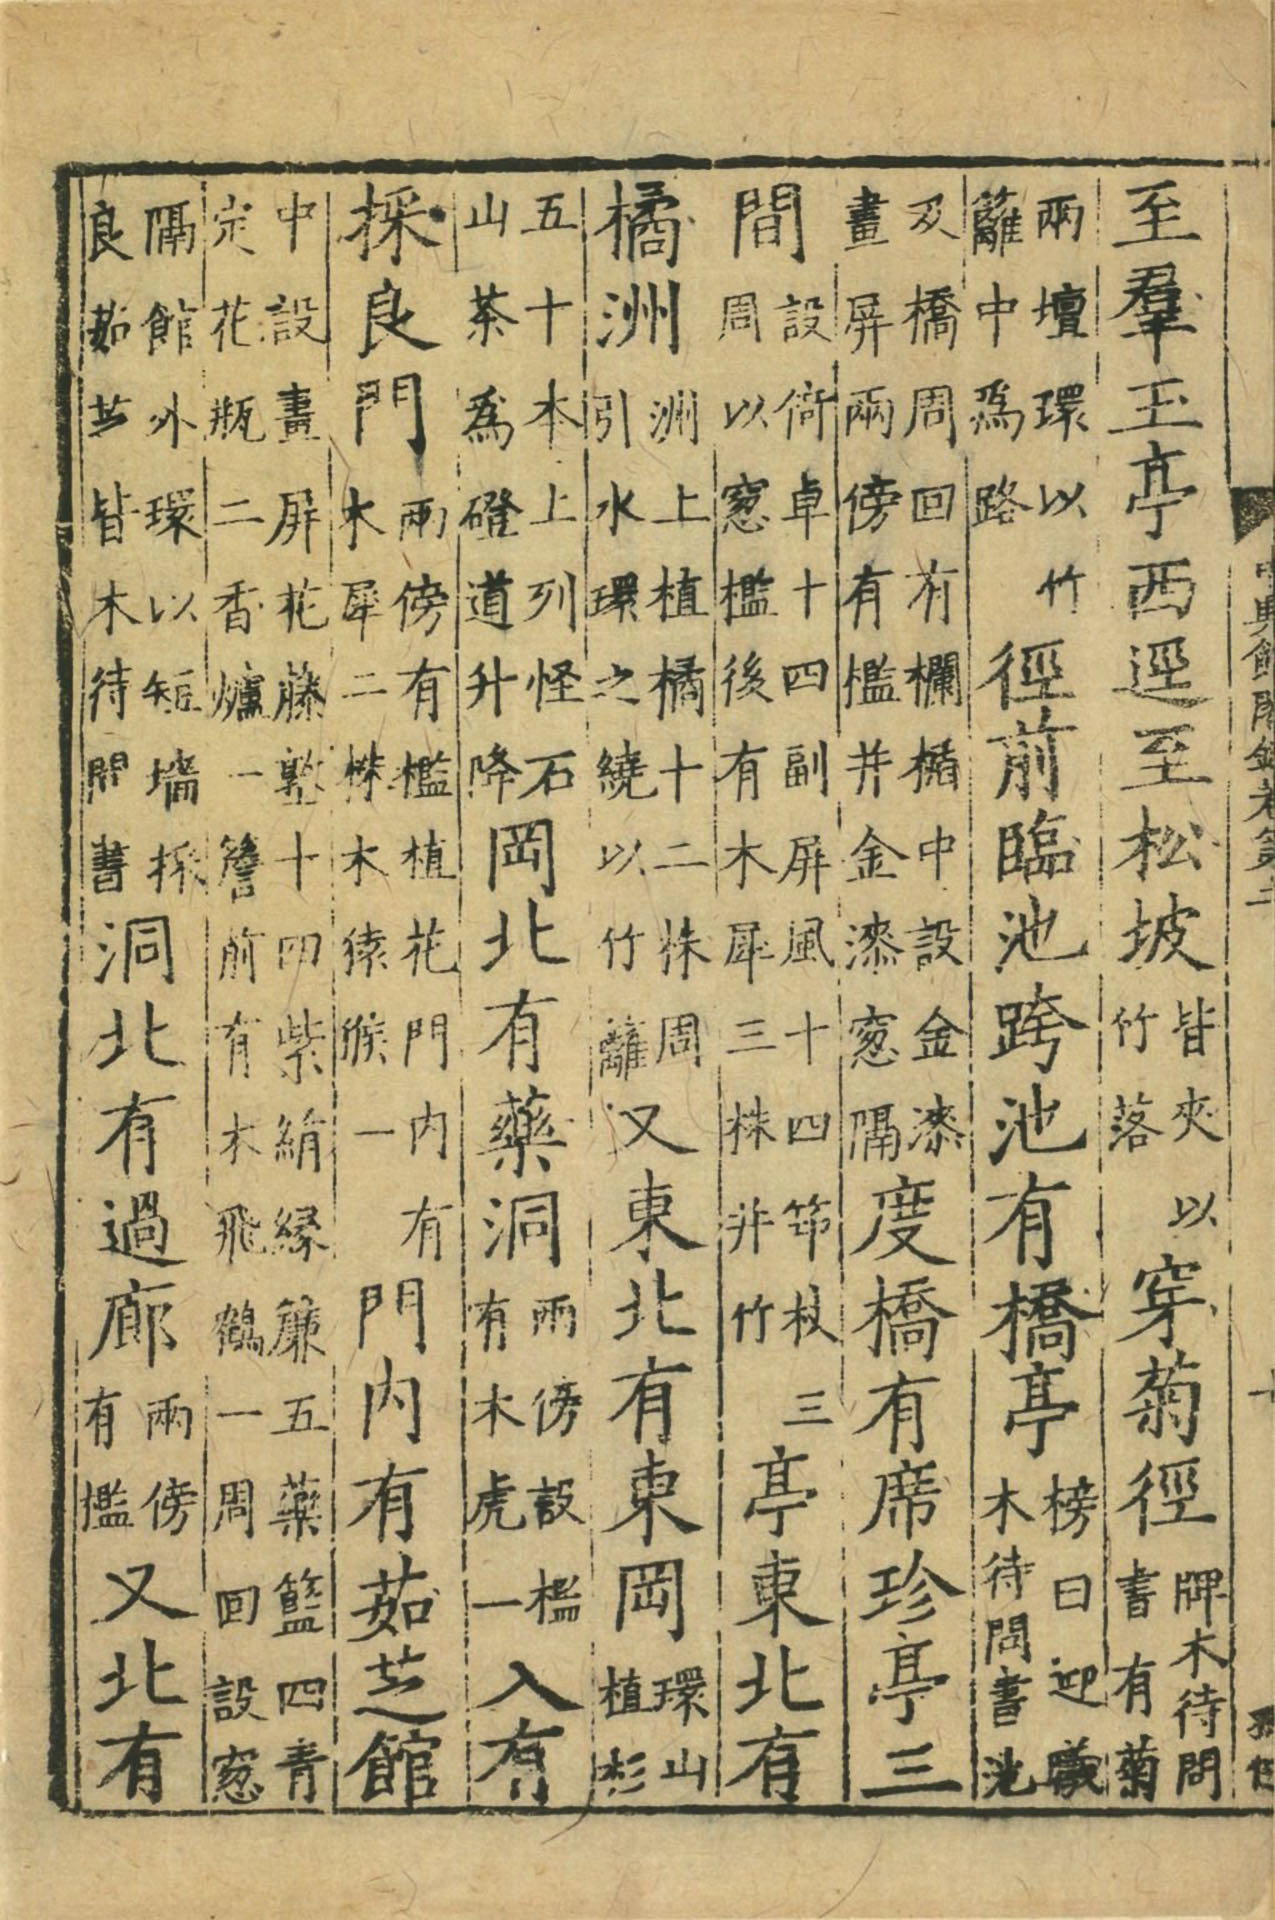 至羣玉亭西逕至松坡皆夾以竹落穿菊徑牌木待問書有菊
兩壇環以竹籬中為路徑前臨池跨池有橋亭榜曰迎曦木待問書池
及橋周回有欄楯中設金漆畫屏兩傍有檻并金漆窓隔度橋有席珍亭三
間設倚卓十四副屏風十四笻杖三周以窓檻後有木犀三株并竹亭東北有
橘洲洲上植橘十二株周引水環之繞以竹籬又東北有東岡環山植杉
五十本上列怪石山茶為磴道升降岡北有藥洞兩傍設檻有木虎一入有
採良門兩傍有檻植花門内有木犀二株木猿猴一門内有茹芝館
中設畫屏花藤墪十四紫絹緣簾五藥籃四青定花瓶二香爐一簷前有木飛鶴一周回設窓
隔館外環以短墻採良茹芝皆木待問書洞北有過廊兩傍有檻又北有